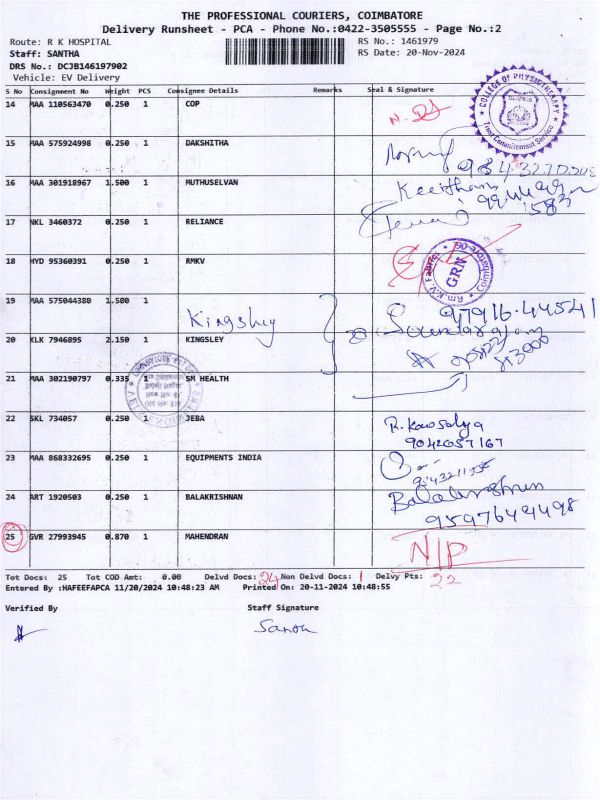 THE PROFESSIONAL COURIERS, COIMBATORE
Delivery Runsheet - PCA - Phone No.:0422-3505555 - Page No.:2
Route: R K HOSPITAL
RS No.: 1461979
Staff: SANTHA
RS Date: 20-Nov-2024
DRS No.: DCJB146197902
Vehicle: EV Delivery
S No Consignment No Weight PCS Consignee Details Remarks Seal & Signature
14 MAA 110563470 0.250 1 COP
COLLEGE OF PHYSIOTHERAPY
Trust Commitment Service
15 MAA 575924998 0.250 1 DAKSHITHA
16 MAA 301918967 1.500 1 MUTHUSELVAN
17 NKL 3460372 0.250 1 RELIANCE
18 HYD 95360391 0.250 1 RMKV
GRN
Coimbatore
19 MAA 575044380 1.500 1
Kingsley
97916.44541
Soundararajan
20 KLK 7946895 2.150 1 KINGSLEY
21 MAA 302190797 0.335 1 SM HEALTH
22 SKL 734057 0.250 1 JEBA
R. Kowsalya
9042057167
23 MAA 868332695 0.250 1 EQUIPMENTS INDIA
24 ART 1920503 0.250 1 BALAKRISHNAN
Balakrishnan
9597649498
25 GVR 27993945 0.870 1 MAHENDRAN
N/P
Tot Docs: 25 Tot COD Amt: 0.00 Delvd Docs: 24 Non Delvd Docs: 1 Delvy Pts: 22
Entered By :HAFEEFAPCA 11/20/2024 10:48:23 AM Printed On: 20-11-2024 10:48:55
Verified By Staff Signature